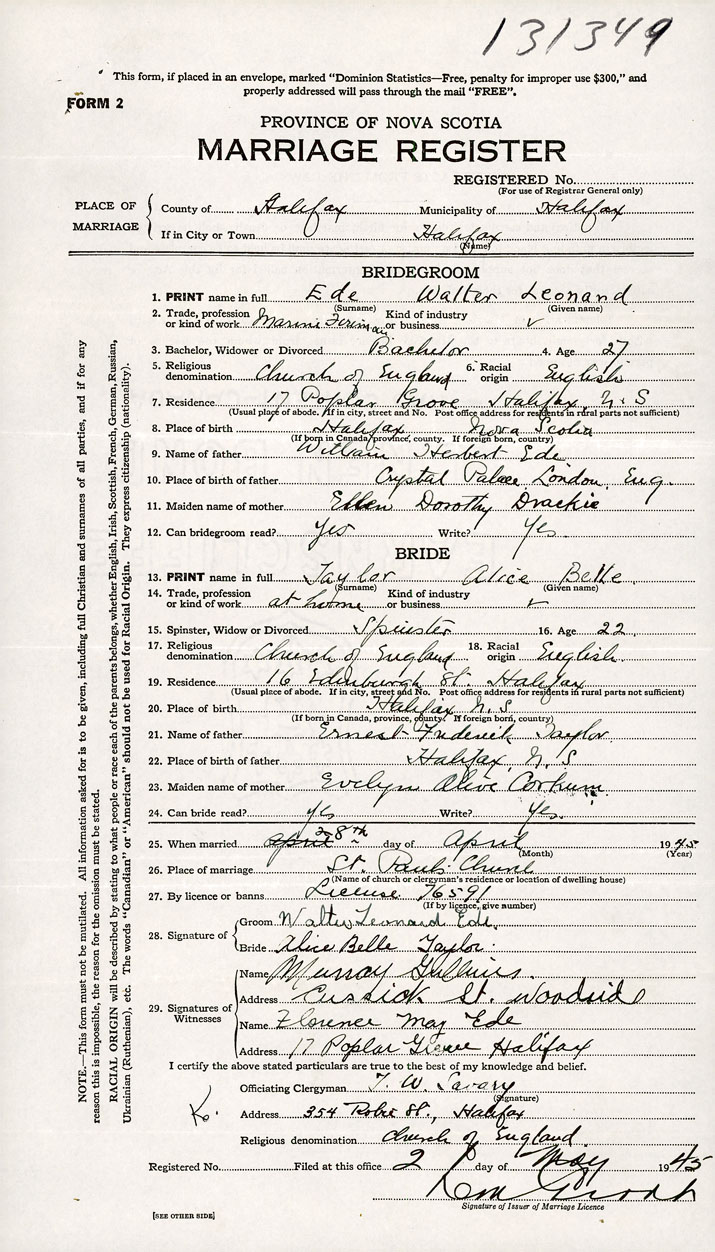 131349
This form, if placed in an envelope, marked "Dominion Statistics—Free, penalty for improper use $300," and
properly addressed will pass through the mail "FREE".
FORM 2
PROVINCE OF NOVA SCOTIA
MARRIAGE REGISTER
REGISTERED No.
(For use of Registrar General only)
PLACE OF MARRIAGE
County of Halifax Municipality of Halifax
If in City or Town Halifax
(Name)
BRIDEGROOM
1. PRINT name in full Ede Walter Leonard
(Surname) (Given name)
2. Trade, profession or kind of work Marine Fireman Kind of industry or business ✓
3. Bachelor, Widower or Divorced Bachelor 4. Age 27
5. Religious denomination Church of England 6. Racial origin English
7. Residence 17 Poplar Grove Halifax N.S
(Usual place of abode. If in city, street and No. Post office address for residents in rural parts not sufficient)
8. Place of birth Halifax Nova Scotia
(If born in Canada, province, county. If foreign born, country)
9. Name of father William Herbert Ede
10. Place of birth of father Crystal Palace London, Eng
11. Maiden name of mother Ellen Dorothy Drackie
12. Can bridegroom read? Yes Write? Yes.
BRIDE
13. PRINT name in full Taylor Alice Belle
(Surname) (Given name)
14. Trade, profession or kind of work at home Kind of industry or business ✓
15. Spinster, Widow or Divorced Spinster 16. Age 22
17. Religious denomination Church of England 18. Racial origin English.
19. Residence 16 Edinburgh St. Halifax
(Usual place of abode. If in city, street and No. Post office address for residents in rural parts not sufficient)
20. Place of birth Halifax N.S
(If born in Canada, province, county. If foreign born, country)
21. Name of father Ernest Frederick Taylor
22. Place of birth of father Halifax, N.S
23. Maiden name of mother Evelyn Alive Corkum
24. Can bride read? Yes Write? Yes.
25. When married 28th day of April 1945
(Month) (Year)
26. Place of marriage St. Paul's Church
(Name of church or clergyman's residence or location of dwelling house)
27. By licence or banns License 76591
(If by licence, give number)
28. Signature of
Groom Walter Leonard Ede.
Bride Alice Belle Taylor.
29. Signatures of Witnesses
Name Murray
Address Cussick St. Woodside
Name Florence May Ede
Address 17 Poplar Grove Halifax
I certify the above stated particulars are true to the best of my knowledge and belief.
Officiating Clergyman T. W. Savary
(Signature)
Address 354 Robie St., Halifax
Religious denomination Church of England
Registered No. Filed at this office 2 day of May 1945
Signature of Issuer of Marriage Licence
[SEE OTHER SIDE]
NOTE.—This form must not be mutilated. All information asked for is to be given, including full Christian and surnames of all parties, and if for any
reason this is impossible, the reason for the omission must be stated.
RACIAL ORIGIN will be described by stating to what people or race each of the parents belongs, whether English, Irish, Scottish, French, German, Russian,
Ukrainian (Ruthenian), etc. The words "Canadian" or "American" should not be used for Racial Origin. They express citizenship (nationality).